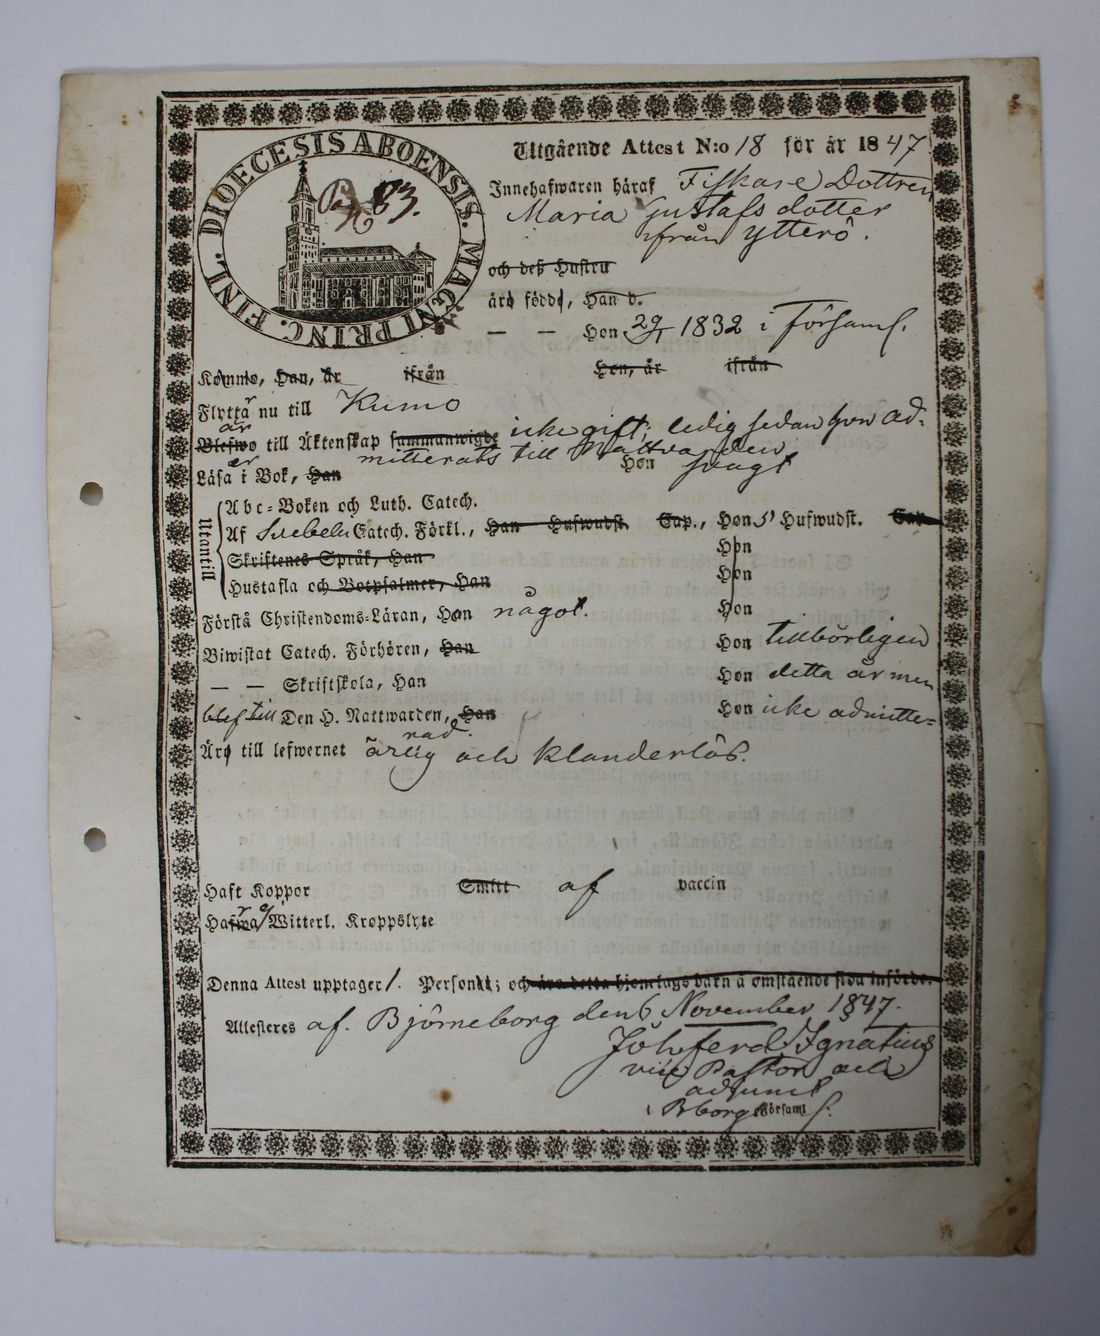 DIOECESIS ABOENSIS. MAGNI PRINC. FINL.
83.
Utgående Attest N:o 18 för år 1847
Innehafwaren häraf Fiskare Dottren
Maria Gustafs dotter
ifrån Ytterö.
och deß Hustru
äro födde, Han d.
— — Hon 29/ 1832 i Församl.
Kommo, Han, är ifrån Hon, är ifrån
Flytta nu till Kumo
är
Blefwo till Äktenskap sammanwigde icke gift; ledig sedan hon ad-
mitterats till Nattvarden
Läsa i Bok, Han Hon svagt
Utantill
Abc-Boken och Luth. Catech.
Af Svebelii Catech. Förkl., Han Hufwudst. Cap., Hon 5 Hufwudst. Cap.
Skriftenes Språk, Han Hon
Hustafla och Botpsalmer, Han Hon
Förstå Christendoms-Läran, Hon något. Hon
Biwistat Catech. Förhören, Han Hon tillbörligen
— — Skriftskola, Han Hon detta år men
blef till Den H. Nattwarden, Han Hon icke admitte-
rad.
Äro till lefwernet ärlig och klanderlös.
Haft Koppor Smitt af vaccin
Hafwa Witterl. Kroppslyte
Denna Attest upptager 1. Personer; och äro detta hjonelags barn å omstående sida införde.
Attesteres af. Björneborg den 6 November 1847.
Joh Ferd Ignatius
vice Pastor och
adjunct
i Bborgs Församl.